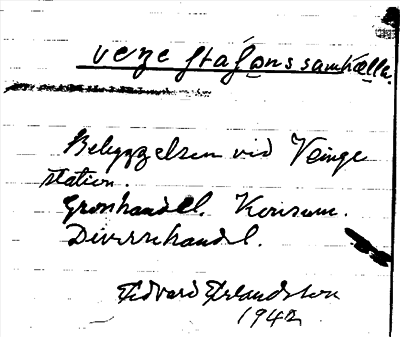 veze stasǫnssamhælle.
Bebyggelsen vid Veinge
station.
Grönhandel. Konsum.
Diversehandel.
Edvard Erlandsson
1942